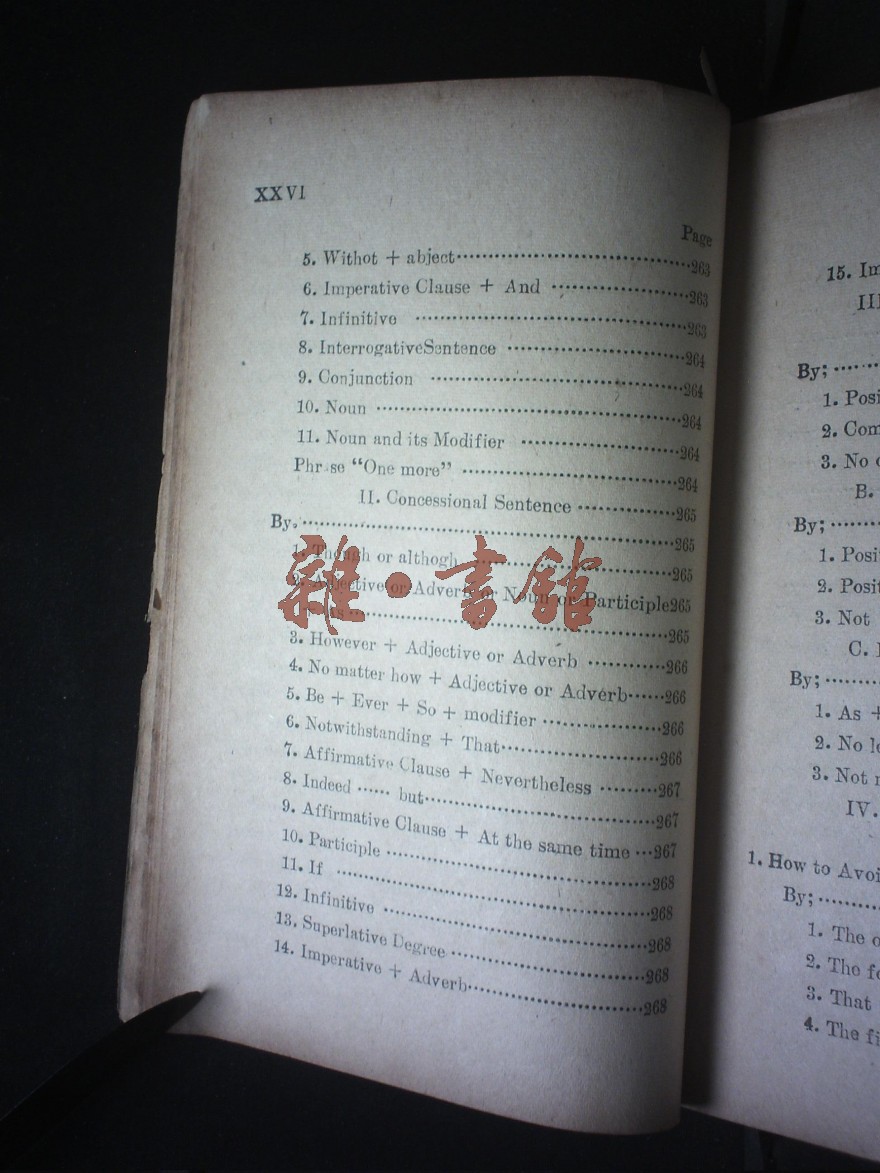 XXVI
Page
5. Withot + abject 263
6. Imperative Clause + And 263
7. Infinitive 263
8. InterrogativeSentence 264
9. Conjunction 264
10. Noun 264
11. Noun and its Modifier 264
Phrase "One more" 264
II. Concessional Sentence 265
By. 265
1. Though or althogh 265
2. Adjective or Adverb or Noun or Participle265
+ As 265
3. However + Adjective or Adverb 266
4. No matter how + Adjective or Adverb 266
5. Be + Ever + So + modifier 266
6. Notwithstanding + That 266
7. Affirmative Clause + Nevertheless 267
8. Indeed ...... but 267
9. Affirmative Clause + At the same time 267
10. Participle 268
11. If 268
12. Infinitive 268
13. Superlative Degree 268
14. Imperative + Adverb 268
雜·書館
15.
III
By;
1.
2.
3. No
B.
By;
1.
2.
3. Not
C.
By;
1. As +
2. No
3. Not
IV.
1. How to
By;
1. The
2. The
3. That
4. The